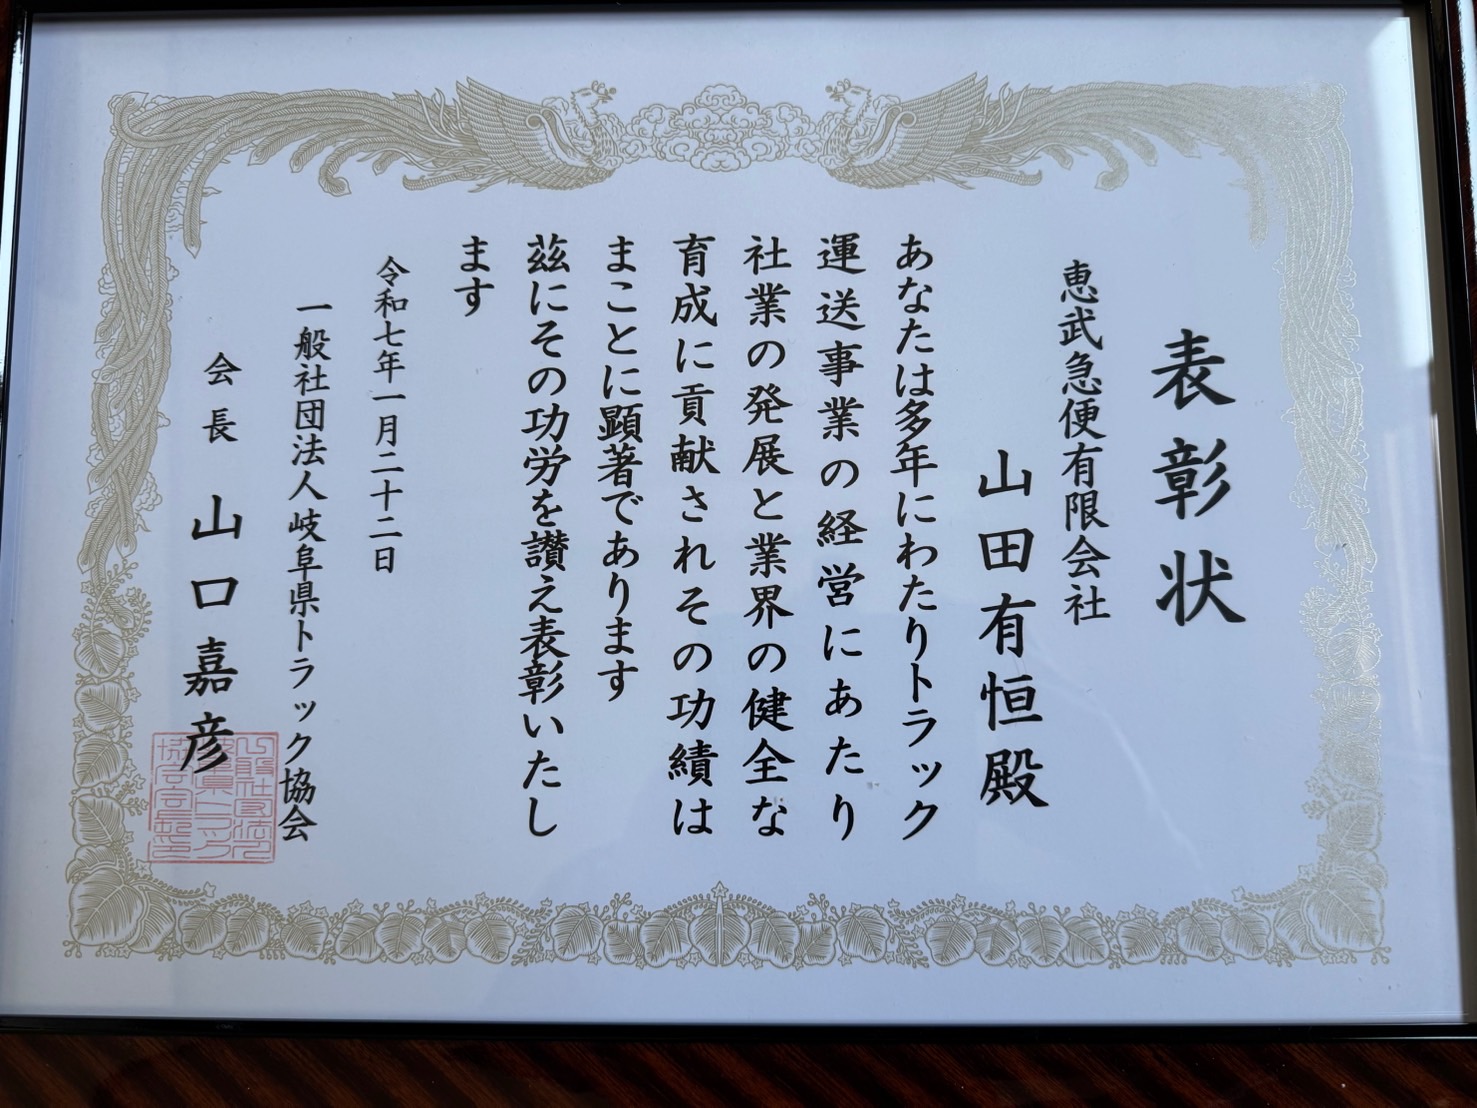 表彰状
恵武急便有限会社
山田有恒殿
あなたは多年にわたりトラック
運送事業の経営にあたり
社業の発展と業界の健全な
育成に貢献されその功績は
まことに顕著であります
茲にその功労を讃え表彰いたし
ます
令和七年一月二十二日
一般社団法人岐阜県トラック協会
会長 山口嘉彦